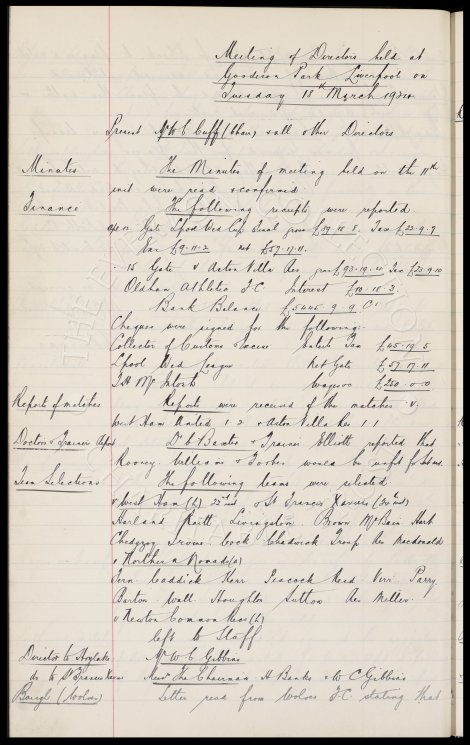 Meeting of Directors held at
Goodison Park Liverpool on
Tuesday 18th March 1924
Present Mr W C Cuff (Chair) & all other Directors
Minutes The Minutes of meeting held on the 11th
inst were read & confirmed
Finance The following receipts were reported
Gate Lpool Wed Cup Final gross £89 10 8. Tax £22-9-9
Exs £9-11-2 net £57-17-11.
15 Gate v Aston Villa Res gross £93-19-4 Tax £23 9-10
Oldham Athletic F.C Interest £10-15-3
Bank Balance £5445-9-9 Cr
Cheques were signed for the following:-
Collector of Customs & Excise Entert Tax £45-19 5
Lpool Wed League Net Gate £57 17-11
T. H. McIntosh wages £250-0-0
Reports of matches Reports were received of the matches v.
West Ham United 1 2 v Aston Villa Res 1 1
Doctors & Trainers Report Dr Baxter & Trainer Elliott reported that
Rooney Williams & Forbes would be unfit for
Team Selections The following teams were selected
v West Ham (h) 22nd & St Francis Xaviers (24th inst)
Harland Raitt Livingston Brown McBain Hart
Chedgzoy Irvine Cock Chadwick Troup Res McDonald
v Northern Nomads (a)
Fern Caddick Kerr Peacock Reid Virr Parry
Barton Wall Houghton Sutton Res Miller.
v Newton Common Recs (h)
Left to Staff
Director to Hoylake Mr W C Gibbins
do to St Francis Xaviers The Chairman H Banks & W C Gibbins
Baugh (Wolves) Letter read from Wolves F.C. stating that